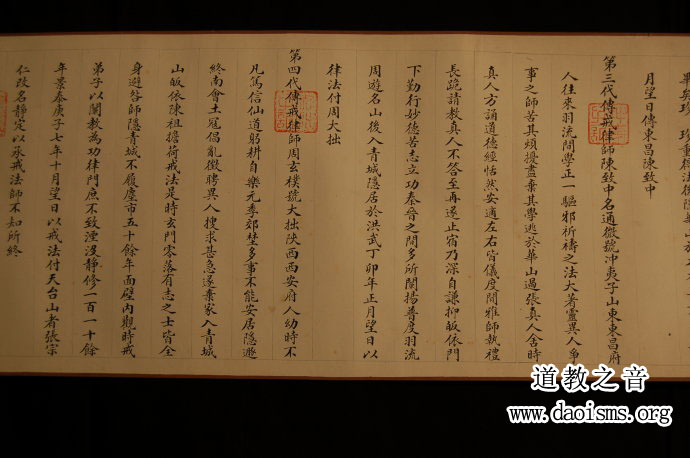 月望日傳東昌陳致中
第三代傳戒律師陳致中名通微號沖夷子山東東昌府
人往來羽流間學正一驅邪祈禱之法大著靈異人爭
事之師苦其煩擾盡棄其學逃於華山過張真人舍時
真人方誦道德經恬然安適左右皆儀度閒雅師執禮
長跪請教真人不答至再遂止宿乃深自謙抑皈依門
下勤行妙德苦志立功秦晉之間多所闡揚普度羽流
周遊名山後入青城隱居於洪武丁卯年正月望日以
律法付周大拙
第四代傳戒律師周玄樸號大拙陝西西安府人幼時不
凡篤信仙道躬耕自樂元季郊埜多事不能安居隱遯
終南會土冦倡亂徵聘異人搜求甚急遂棄家入青城
山皈依陳祖擔荷戒法是時玄門零落有志之士皆全
身避咎師隱青城不履塵市五十餘年面壁內觀時戒
弟子以闡教為功律門庶不致湮沒靜修一百一十餘
年景泰庚子七年十月望日以戒法付天台山者張宗
仁改名靜定以承戒法師不知所終
道教之音
www.daoisms.org